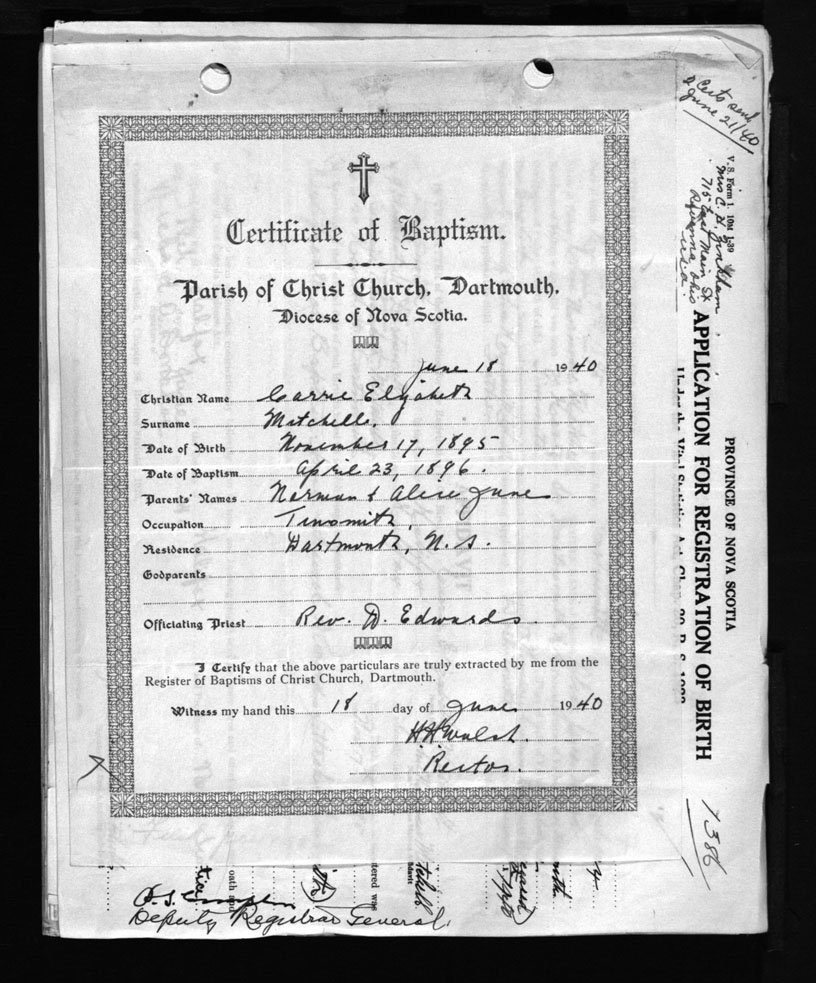 2 Certs sent
June 21/40
V. S. Form 1. 10M 1-39
Mrs C. H.
715 East Main St.
Ravenna Ohio
U.S.A.
PROVINCE OF NOVA SCOTIA
APPLICATION FOR REGISTRATION OF BIRTH
Under the Vital Statistics Act, Chap.
1386
Certificate of Baptism.
Parish of Christ Church, Dartmouth,
Diocese of Nova Scotia.
June 18 1940
Christian Name Carrie Elizabeth
Surname Mitchell.
Date of Birth November 17, 1895
Date of Baptism April 23, 1896.
Parents' Names Norman & Alice Jane
Occupation Tinsmith,
Residence Dartmouth, N. S.
Godparents
Officiating Priest Rev. D. Edwards.
I Certify that the above particulars are truly extracted by me from the
Register of Baptisms of Christ Church, Dartmouth.
Witness my hand this 18 day of June 1940
H H Walsh.
Rector.
oath and
tered was
Deputy Registrar General.